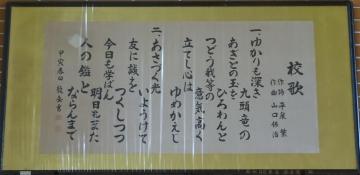 校歌
作詩 平泉 蒙
作曲 山口保治
一、ゆかりも深き
九頭竜の
あぎとの玉を
ひろわんと
つどう我等の
意気高く
立てし心は
ゆめかえし
二、あさづく光
いようけて
友に誠を
つくしつつ
今日も学ばん
明日もまた
人の鑑と
ならんまで
甲寅春日